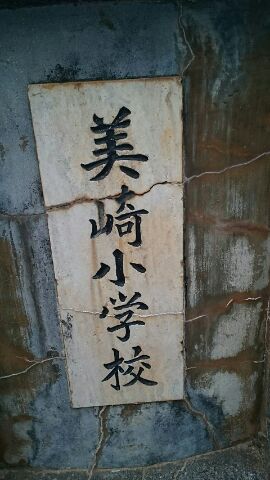 美崎小学校